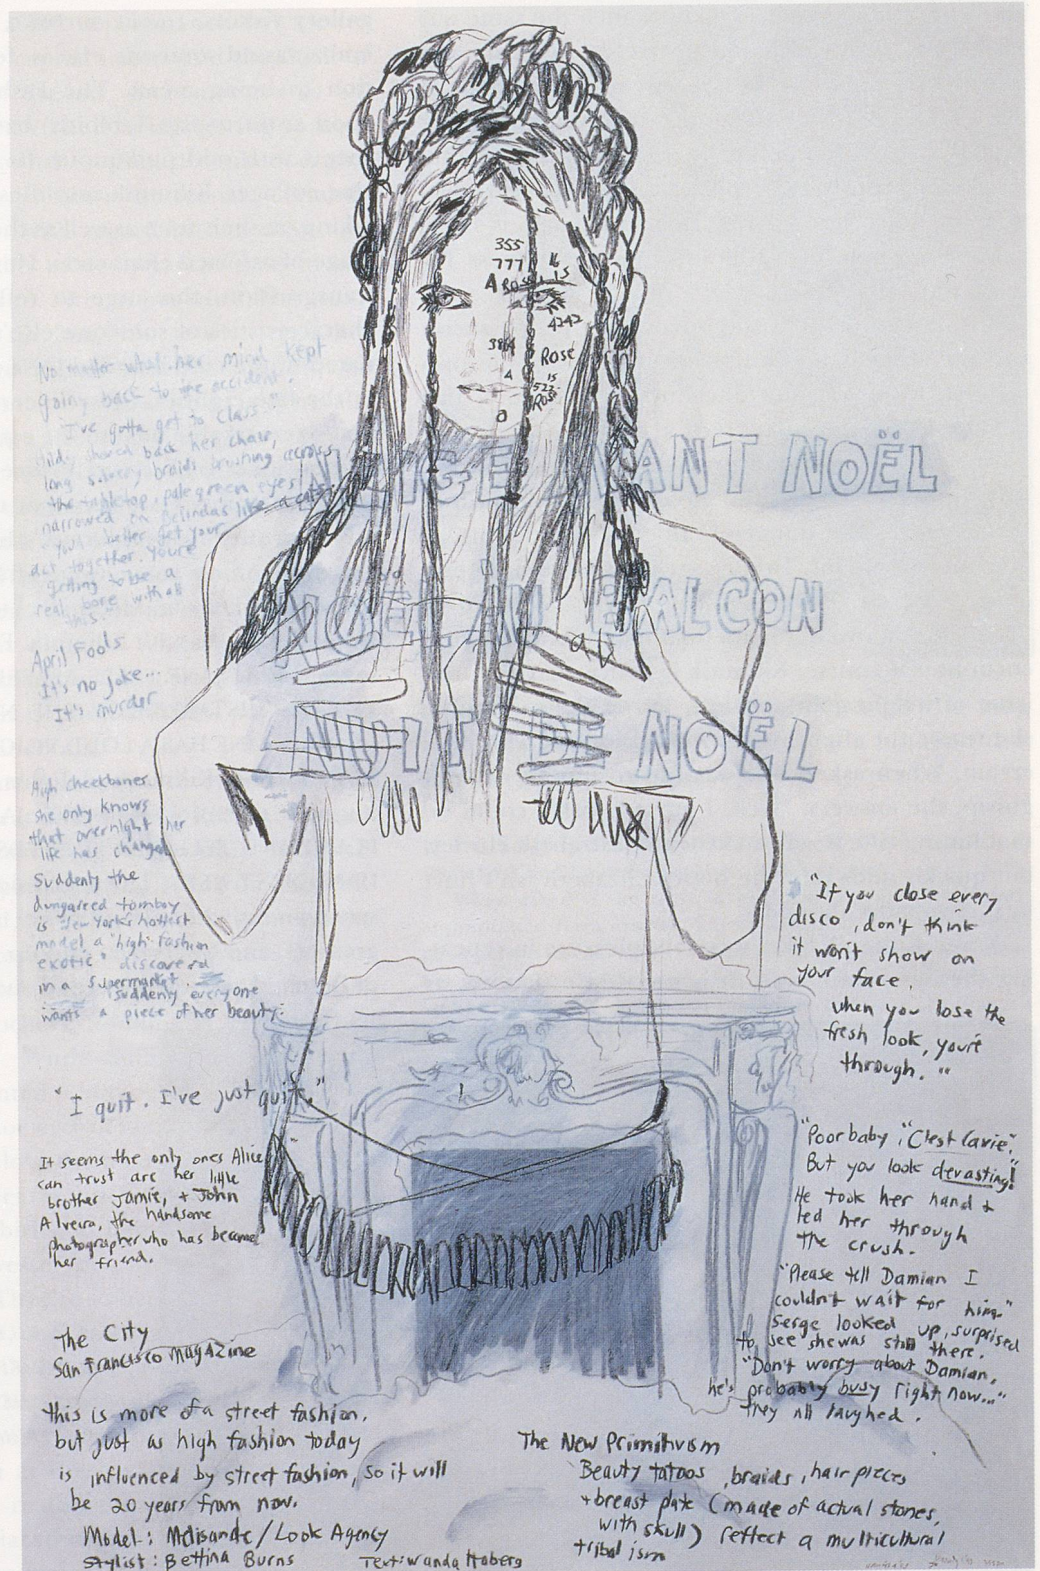 355
777 16
A ROSE IS
4242
Rosé
A
IS
522
ROSE
a
NEIGE AVANT NOËL
NOËL AU BALCON
au
NUIT DE NOËL
No matter what. her mind kept
going back to the accident.
"I've gotta get to class."
shoved back her chair,
long silvery braids across
the tabletop, pale green eyes
narrowed on Belinda's like a cat's
"You better get your
act together. You're
getting to be a
real bore with all
this."
April Fools
It's no joke...
It's murder
High cheekbones
she only knows
that overnight her
life has changed
Suddenly the
dungareed tomboy
is New York's hottest
model a "high-fashion
exotic" discovered
in a supermarket.
suddenly everyone
wants a piece of her beauty.
"I quit. I've just quit."
It seems the only ones Alice
can trust are her little
brother Jamie, + John
Alveira, the handsome
photographer who has become
her friend.
The City
San Francisco Magazine
this is more of a street fashion,
but just as high fashion today
is influenced by street fashion, so it will
be 20 years from now.
Model: Melisande/Look Agency
Stylist: Bettina Burns Text: Wanda Hoberg
"If you close every
disco, don't think
it won't show on
your face.
when you lose the
fresh look, you're
through."
"Poor baby, "C'lest lavie."
But you look devasting!"
He took her hand +
led her through
the crush.
"Please tell Damian I
couldn't wait for him."
Serge looked up, surprised
to see she was still there.
"Don't worry about Damian,
he's probably busy right now..."
they all laughed.
The New Primitivism
Beauty tatoos, braids, hair pieces
+ breast plate (made of actual stones,
with skull) reflect a multicultural
tribalism